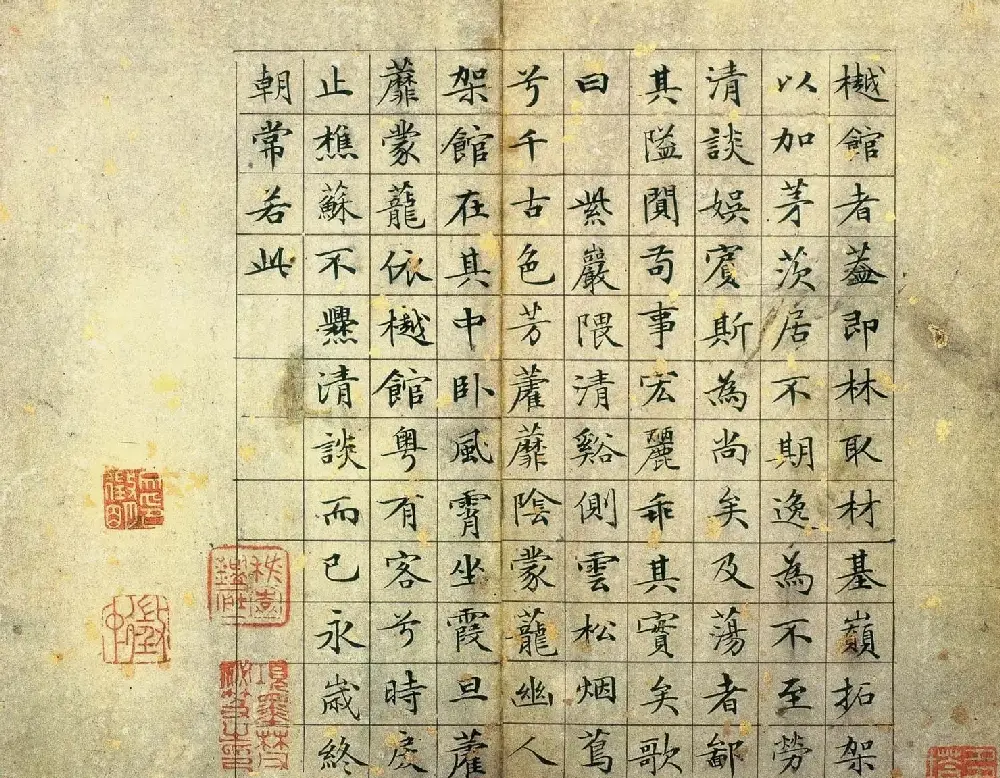 樾館者蓋即林取材基巔拓架
以加茅茨居不期逸為不至勞
清談娛賓斯為尚矣及蕩者鄙
其隘閴苟事宏麗乖其實矣歌
曰 紫巖隈清谿側雲松烟蔦
兮千古色芳藿蘼陰蒙蘢幽人
架館在其中卧風霄坐霞旦藿
蘼蒙蘢依樾館粤有客兮時戾
止樵蘇不爨清談而已永歲終
朝常若此